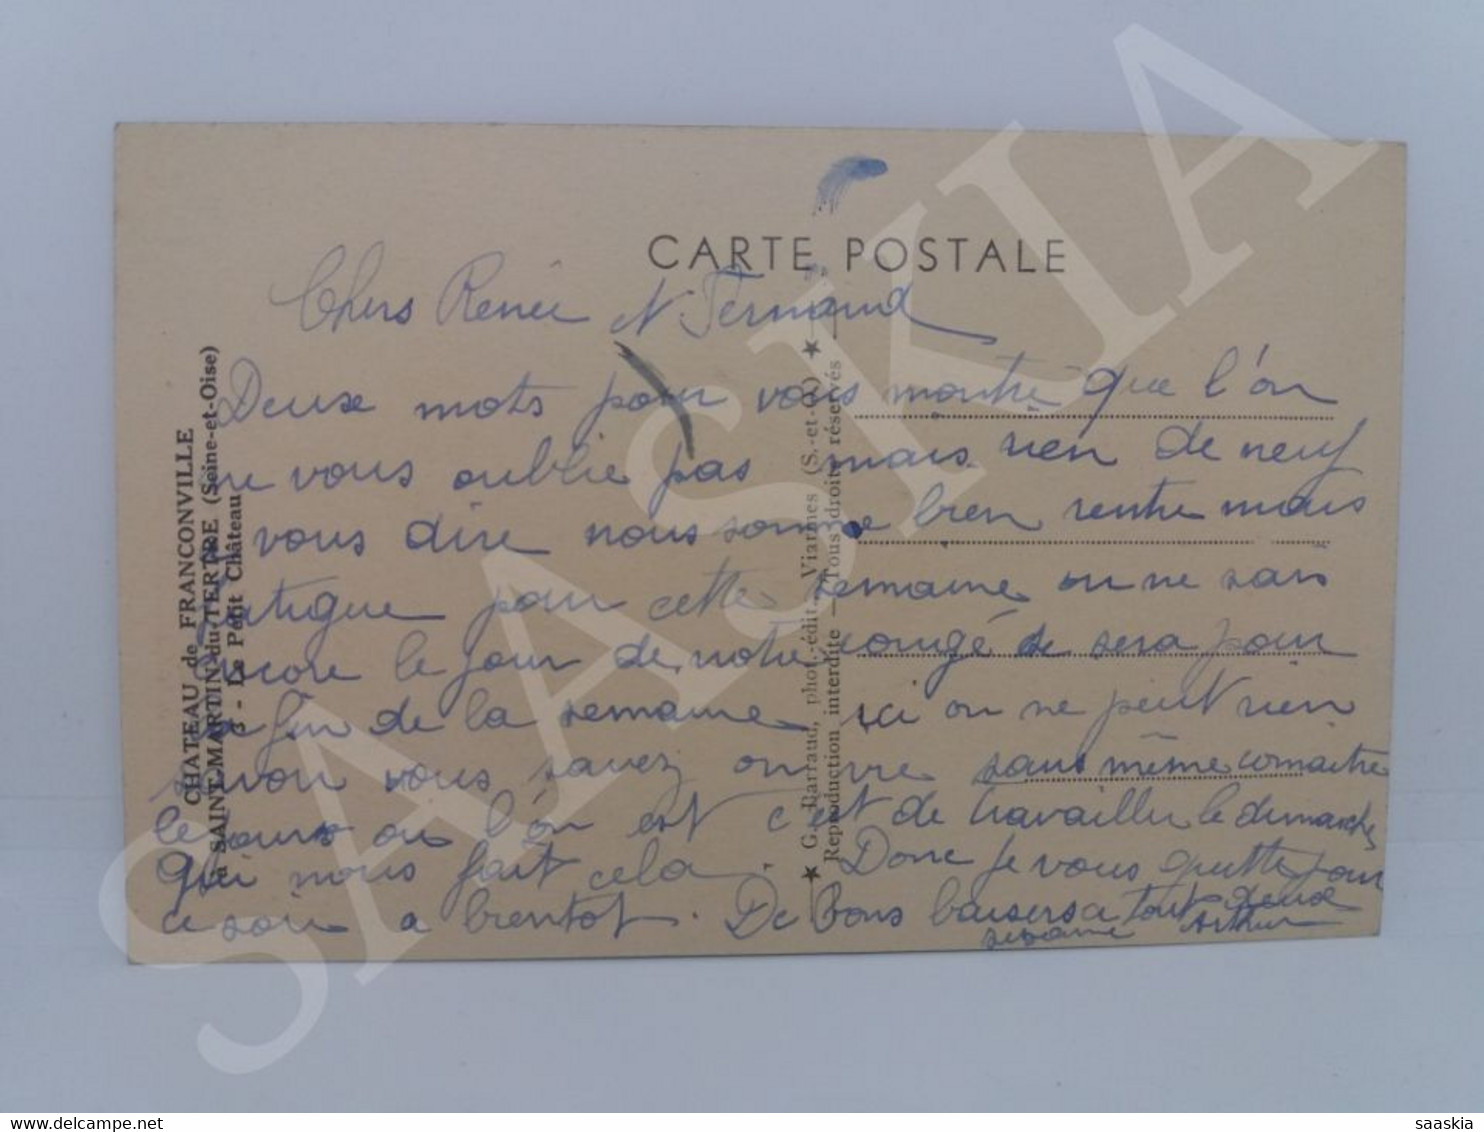 CARTE POSTALE
CHATEAU de FRANCONVILLE
à SAINT-MARTIN-du-TERTRE (Seine-et-Oise)
3 - Le Petit Château
★ G. Darraud, phot.-édit., Viarmes (S.-et-O.) ★
Reproduction interdite — Tous droits réservés
Chers Renée et Fernand
Deuxe mots pour vous montré que l'on
ne vous oublie pas mais rien de neuf
a vous dire nous somme bien rentre mais
fatigue pour cette semaine on ne sais
encore le jour de notre congé se sera pour
la fin de la semaine ici on ne peut rien
savoir vous savez on vie sans même connaitre
le jours ou l'on est c'est de travailler le dimanche
qui nous fait cela. Donc je vous quitte pour
ce soir a bientot. De bons baisers a tout deuxe
Arthur
SAASKIA
www.delcampe.net
saaskia